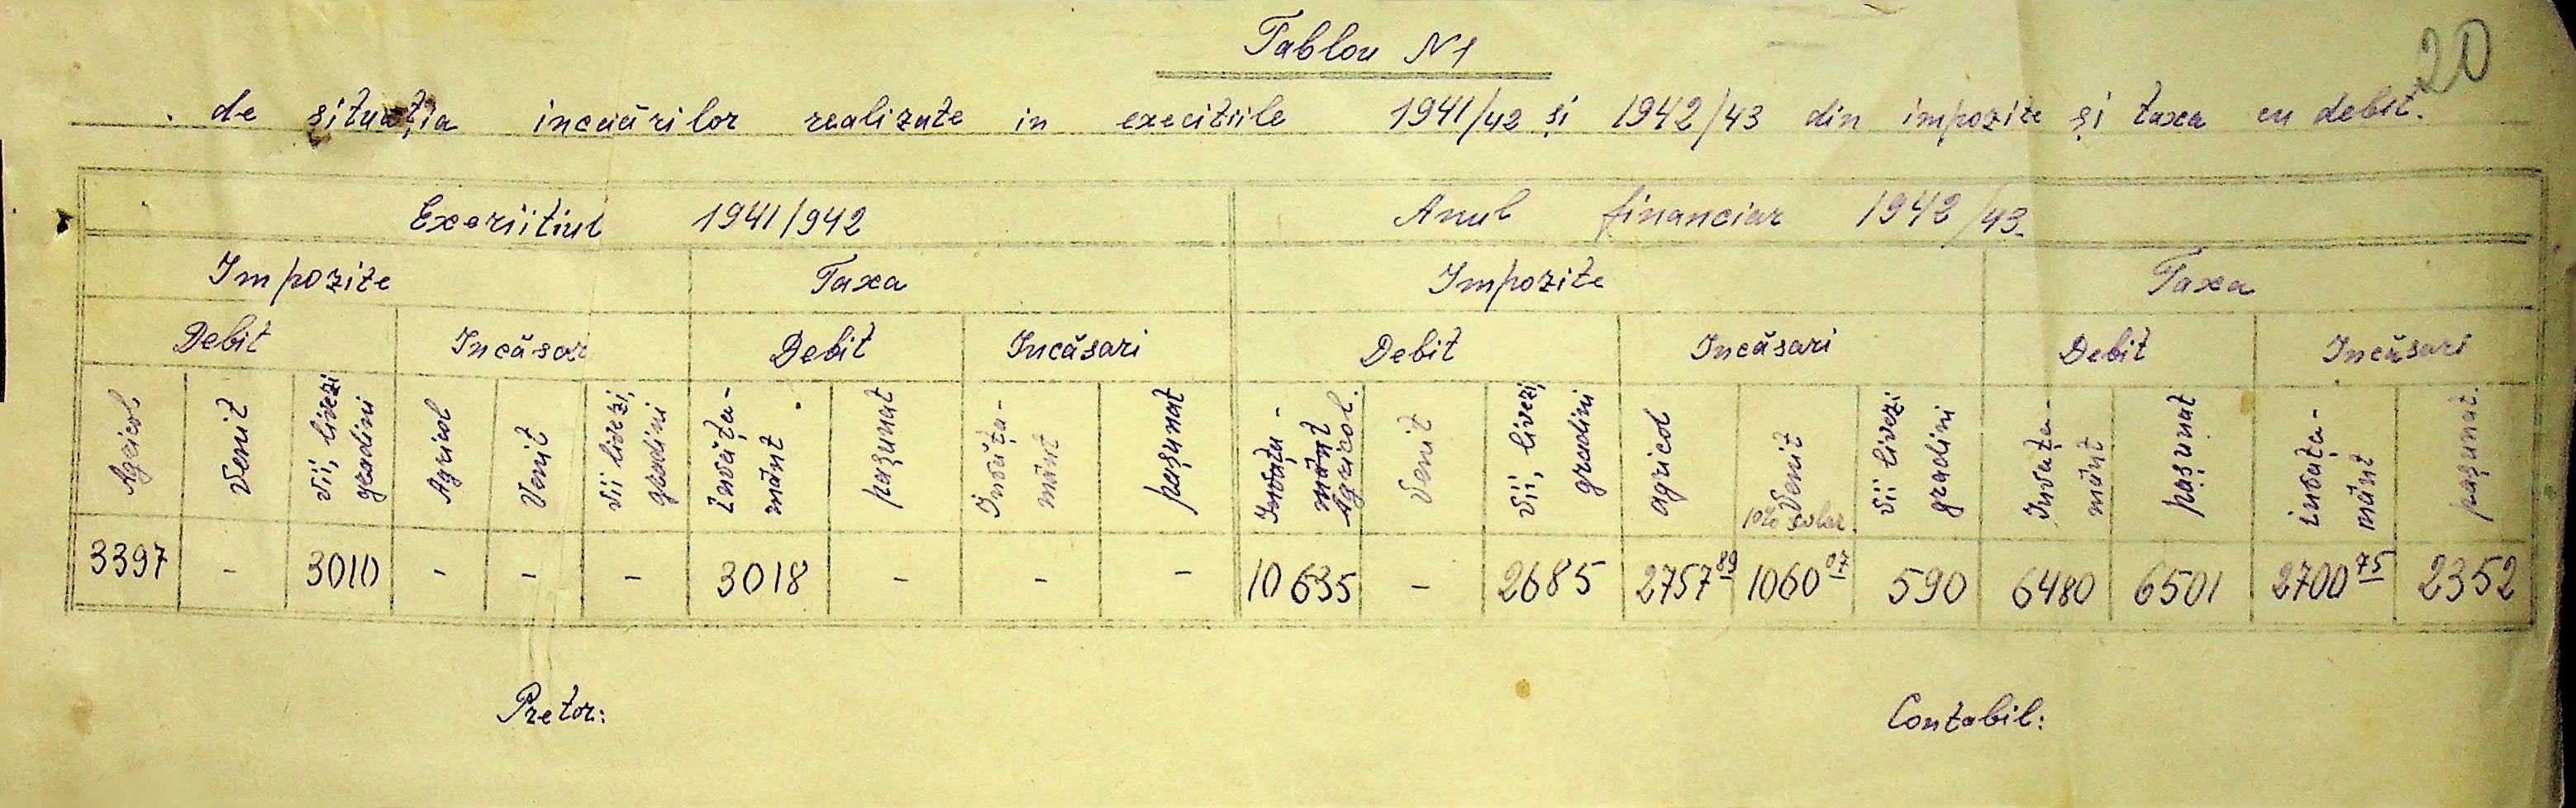 20
Tablou N 1
de situația incaărilor realizate in execitiile 1941/42 și 1942/43 din impozite și taxa cu debit.
Exeriitiul 1941/942 Anul financiar 1942/43.
Impozite Taxa Impozite Taxa
Debit Incăsari Debit Incăsari Debit Incăsari Debit Incăsari
Agricol
Venit
vii, livezi
gradini
Agricol
Venit
vii livezi,
gradini
învăța-
mânt
pașunat
Învăța-
mânt
pașunat
Învăța-
mânt
Agricol.
Venit
vii, livezi,
gradini
agricol
Venit
10% scolar.
vii livezi
gradini
Învața-
mânt
pașunat
învăța-
mânt
pașunat.
3397 - 3010 - - - 3018 - - - 10635 - 2685 2757 89 1060 07 590 6480 6501 2700 75 2352
Pretor: Contabil: